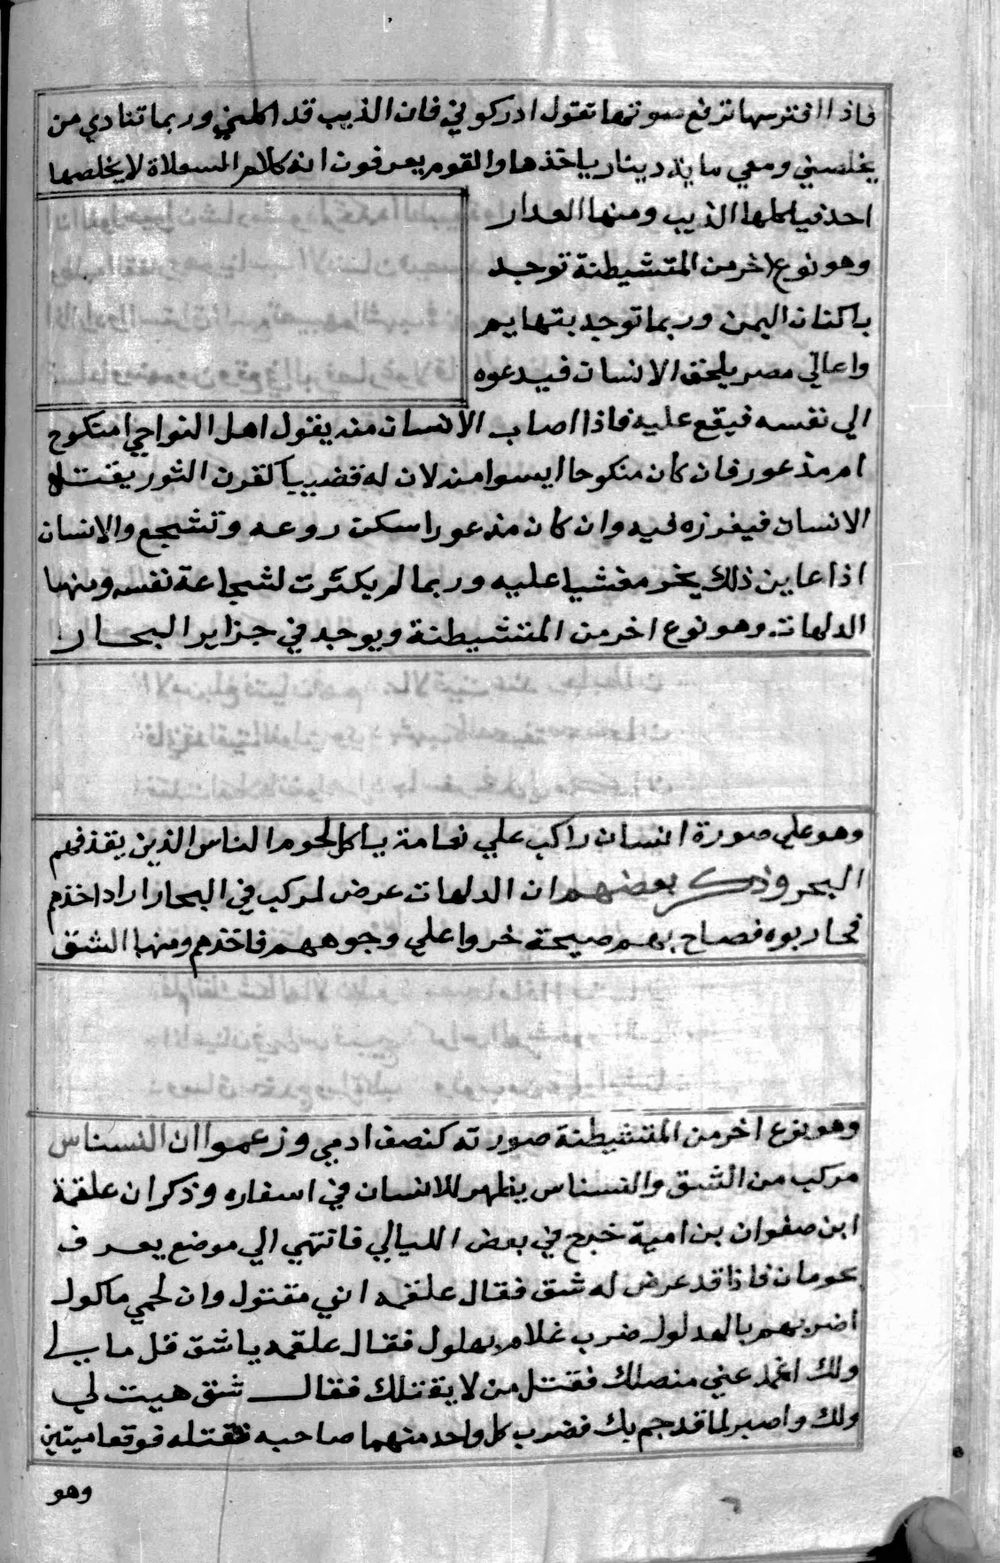 فاذا افترسها ترفع صوتها تقول ادركوني فان الذيب قد اكلني وربما تنادي من
يخلصني ومعي ماية دينار ياخذها والقوم يعرفون انه كلام السعلاة لا يخلصها
احد فياكلها الذيب ومنها العدار
وهو نوع اخر من المتشيطنة توجد
باكنان اليمن وربما توجد بتهايم
واعالي مصر يلحق الانسان فيدعوه
الي نفسه فيقع عليه فاذا اصاب الانسان منه يقول اهل النواحي امنكوح
ام مذعور فان كان منكوحا ايسوا منه لان له قضيبا كقرن الثور يقتله
الانسان فيغرزه فيه وان كان مذعورا سكن روعه وتشجع والانسان
اذا عاين ذلك يخر مغشيا عليه وربما لم يكترت لشجاعة نفسه ومنها
الدلهات وهو نوع اخر من المتشيطنة ويوجد في جزاير البحار
وهو علي صورة انسان راكب علي نعامة ياكل لحوم الناس الذين يقذفهم
البحر وذكر بعضهم ان الدلهات عرض لمركب في البحار اراد اخذهم
فحاربوه فصاح بهم صيحة خروا علي وجوههم فاخذهم ومنها الشق
وهو نوع اخر من المتشيطنة صورته كنصف ادمي وزعموا ان النسناس
مركب من الشق والنسناس يظهر للانسان في اسفاره وذكر ان علقمة
ابن صفوان بن امية خرج في بعض الليالي فانتهي الي موضع يعرف
بحومان فاذا قد عرض له شق فقال علقمه اني مقتول وان لحمي ماكول
اضربهم بالهدلول ضرب غلام بهلول فقال علقمه ياشق قل مالي
ولك اغمد عني منصلك فقتل من لا يقتلك فقال شق هيت لي
ولك واصبر لما قد جم بك فضرب كل واحد منهما صاحبه فقتله فوقعا ميتين
وهو